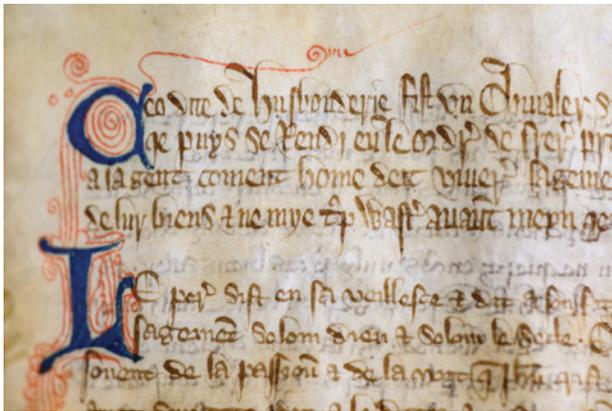 Ceo dite de husbonderie fist vn Chiualer
qe puys se Rendi en le ordr̃ de frer̃ pr
a la gent coment home dett viuer̃ sageme
de lur biens & ne mye tp Wastr̃ auant meyn qe
LE per̃ sist en sa veillesce & dit a son f
sagement solom dieu & solom le secle.
souent de la passion & de la mort q̃